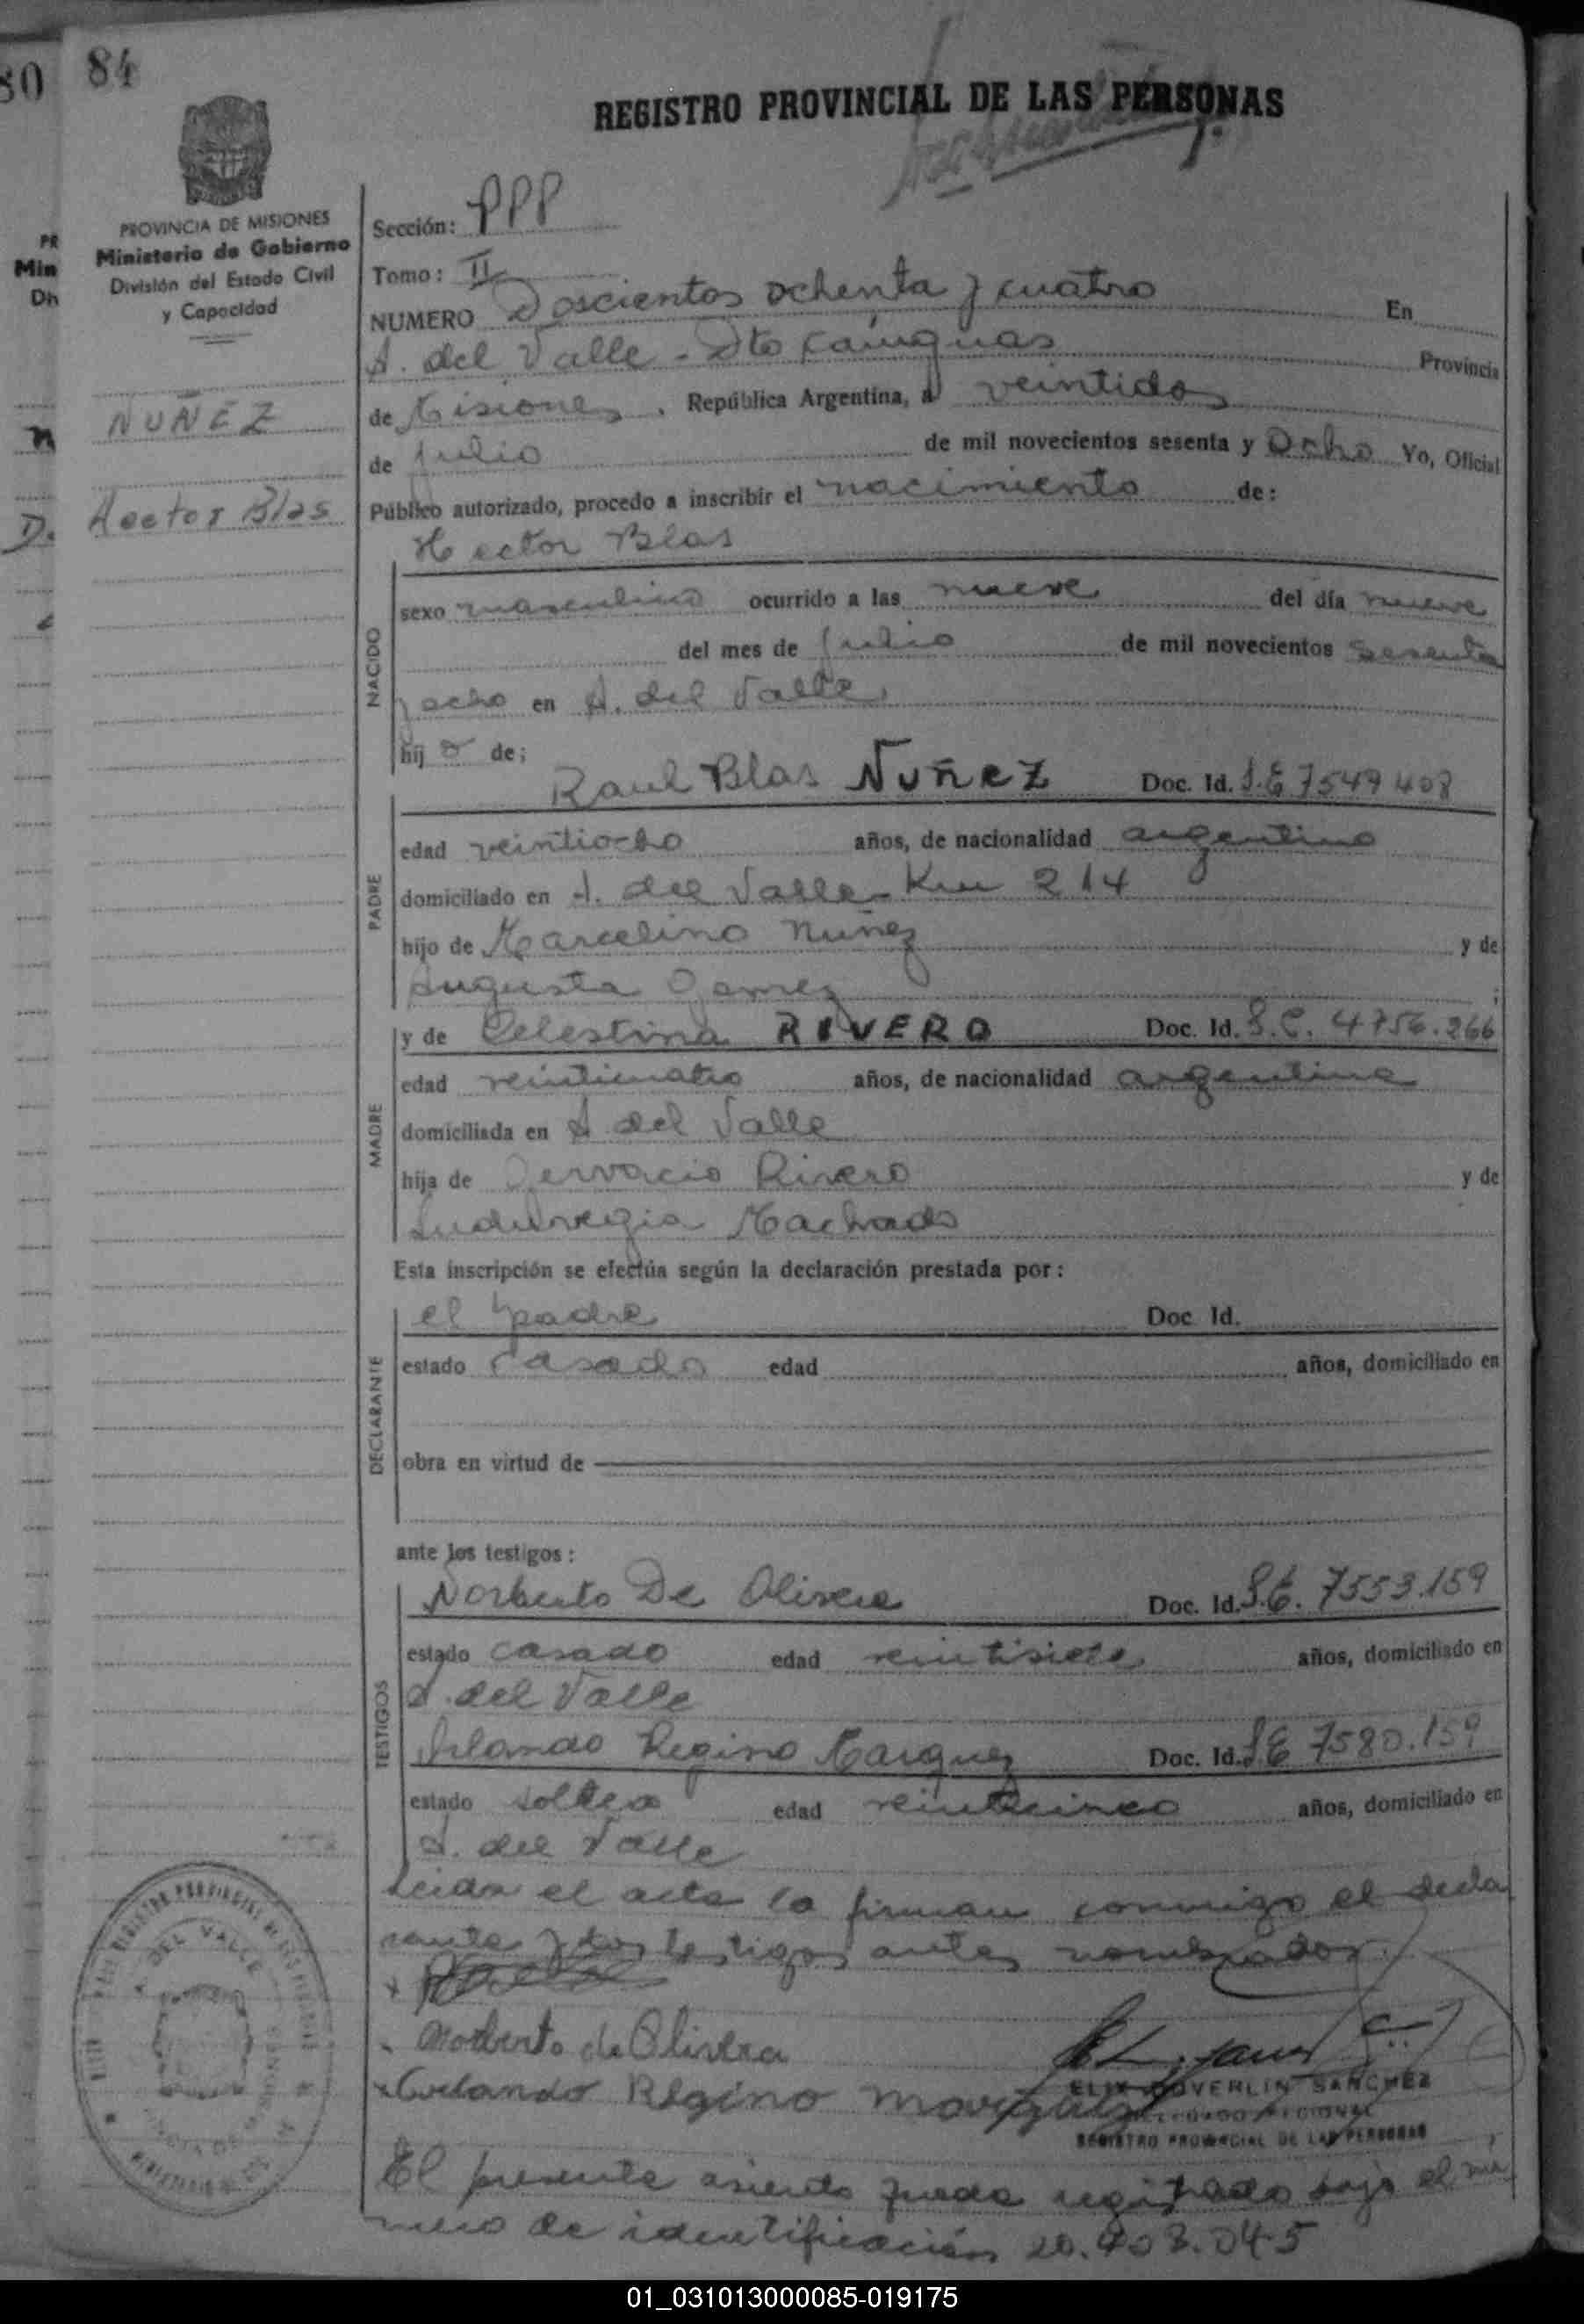 80 84
REGISTRO PROVINCIAL DE LAS PERSONAS
PROVINCIA DE MISIONES
Ministerio de Gobierno
División del Estado Civil
y Capacidad
NUÑEZ
Hector Blas
Sección: PPP
Tomo: II
NUMERO Doscientos ochenta y cuatro En
A. del Valle - Dto Cainguas Provincia
de Misiones, República Argentina, a veintidos
de julio de mil novecientos sesenta y Ocho Yo, Oficial
Público autorizado, procedo a inscribir el nacimiento de:
Hector Blas
NACIDO
sexo masculino ocurrido a las nueve del día nueve
del mes de julio de mil novecientos sesenta
y ocho en A. del Valle
hijo de;
Raul Blas NuñeZ Doc. Id. L.E 7549408
PADRE
edad veintiocho años, de nacionalidad argentino
domiciliado en A. del Valle - Km 214
hijo de Marcelino Nuñez y de
Augusta Gomez;
y de Celestina RIVERO Doc. Id. L.C. 4756.266
MADRE
edad veinticuatro años, de nacionalidad argentina
domiciliada en A del Valle
hija de Gervacio Rivero y de
Machado
Esta inscripción se efectúa según la declaración prestada por:
el padre Doc Id.
DECLARANTE
estado casado edad años, domiciliado en
obra en virtud de
ante los testigos:
Norberto De Olivera Doc. Id. L.E. 7553.159
TESTIGOS
estado casado edad veintisiete años, domiciliado en
A. del Valle
Orlando Regino Marquez Doc. Id. L.E 7580.159
estado soltero edad veinticinco años, domiciliado en
A. del Valle
Leida el acta la firman conmigo el decla
rante y los testigos antes nombrados.
Norberto de Olivera
Orlando Regino Marquez
SANCHEZ
REGISTRO PROVINCIAL DE LAS PERSONAS
A. DEL VALLE
El presente asiento queda registrado bajo el nú
mero de identificación
01_031013000085-019175